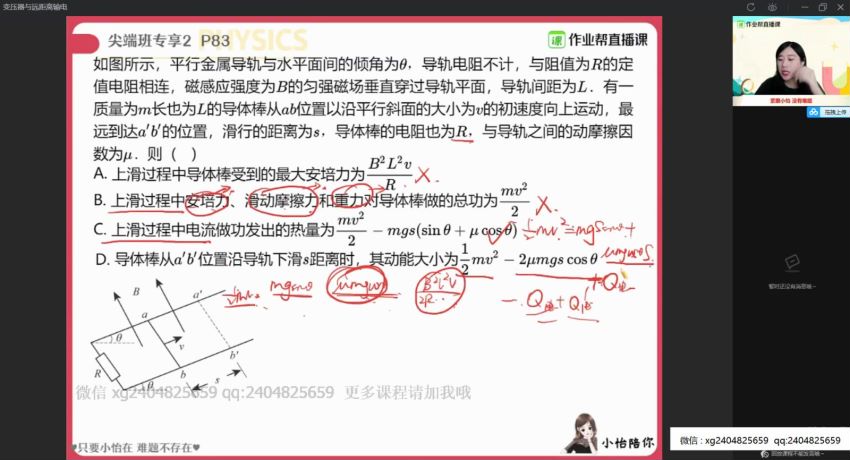 变压器与远距离输电
尖端班专享2 P83
PHYSICS
作业帮直播课
如图所示，平行金属导轨与水平面间的倾角为θ，导轨电阻不计，与阻值为R的定
值电阻相连，磁感应强度为B的匀强磁场垂直穿过导轨平面，导轨间距为L．有一
质量为m长也为L的导体棒从ab位置以沿平行斜面的大小为v的初速度向上运动，最
远到达a′b′的位置，滑行的距离为s，导体棒的电阻也为R，与导轨之间的动摩擦因
数为μ．则（ ）
A. 上滑过程中导体棒受到的最大安培力为B²L²v/R
B. 上滑过程中安培力、滑动摩擦力和重力对导体棒做的总功为mv²/2
C. 上滑过程中电流做功发出的热量为mv²/2 − mgs(sinθ + μcosθ)
D. 导体棒从a′b′位置沿导轨下滑s距离时，其动能大小为1/2mv² − 2μmgs cosθ
B
a
a′
θ
v
R
b
b′
θ
s
微信 xg2404825659 qq:2404825659 更多课程请加我哦
♥只要小怡在 难题不存在♥
小怡陪你
作业帮直播课
拖拽上传
暂时还没有消息哦~
微信：xg2404825659 qq:2404825659
回放课程不能发言哦~